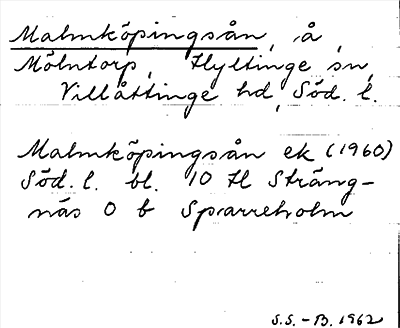 Malmköpingsån, å,
Mölntorp, Hyltinge sn,
Villåttinge hd, Söd. l.
Malmköpingsån ek (1960)
Söd. l. bl. 10 H Sträng-
näs O b Sparreholm
S.S. - B. 1962